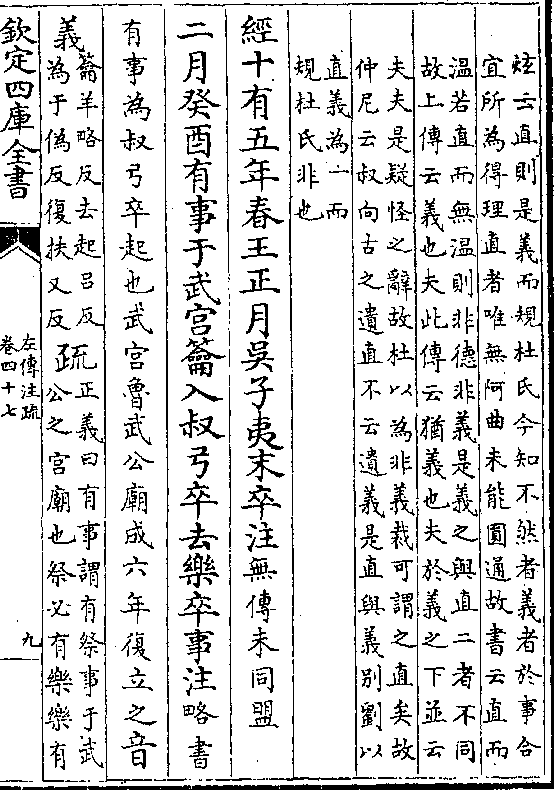 炫云直則是義而規杜氏今知不然者義者於事合
宜所為得理直者唯無阿曲未能圓通故書云直而
溫若直而無溫則非德非義是義之與直二者不同
故上傳云義也夫此傳云猶義也夫於義之下並云
夫夫是疑怪之辭故杜以為非義裁可謂之直矣故
仲尼云叔向古之遺直不云遺義是直與義別劉以
直義為一而
規杜氏非也
經十有五年春王正月吳子夷末卒注無傳未同盟
二月癸酉有事于武宮籥入叔弓卒去樂卒事注略書
有事為叔弓卒起也武宮魯武公廟成六年復立之音
義籥羊略反去起呂反
為于偽反復扶又反
疏正義曰有事謂有祭事于武
公之宮廟也祭必有樂樂有
欽定四庫全書
左傳注疏
卷四十七
九